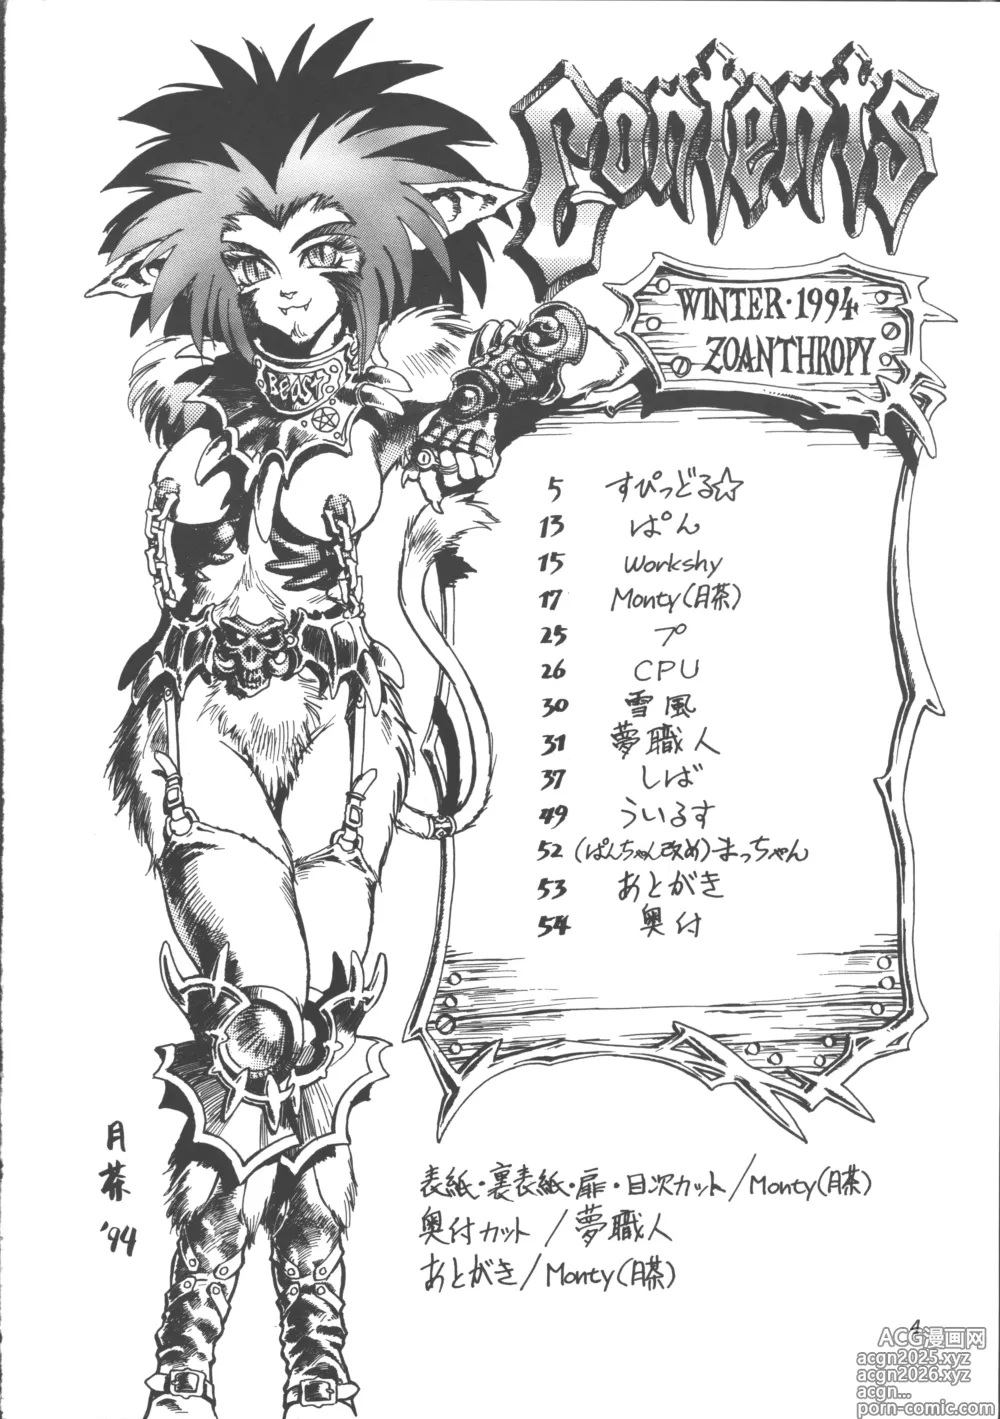 Contents
WINTER・1994
ZOANTHROPY
BEAST
5 すぴっどる☆
13 ぱん
15 Workshy
17 Monty(月茶)
25 プ
26 CPU
30 雪風
31 夢職人
37 しば
49 ういるす
52 (ぱんちゃん改め)まっちゃん
53 あとがき
54 奥付
月茶
'94
表紙・裏表紙・扉・目次カット/Monty(月茶)
奥付カット/夢職人
あとがき/Monty(月茶)
4
ACG漫画网
acgn2025.xyz
acgn2026.xyz
acgn...
porn-comic.com